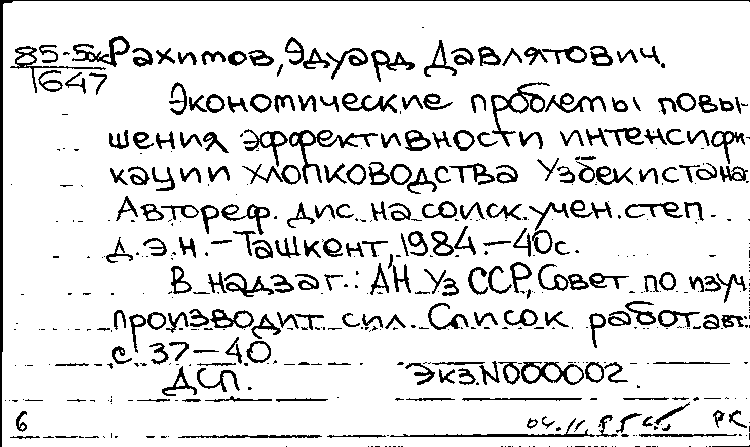 85-5дк Рахимов, Эдуард Давлятович.
1647
Экономические проблемы повы-
шения эффективности интенсифи-
кации хлопководства Узбекистана.
Автореф. дис. на соиск. учен. степ.
д.э.н. – Ташкент, 1984. – 40с.
В надзаг.: АН УзССР, Совет по изуч.
производит. сил. Список работ авт.:
с. 37 – 40.
ДСП. Экз.N000002.
6 04.11.85 РК